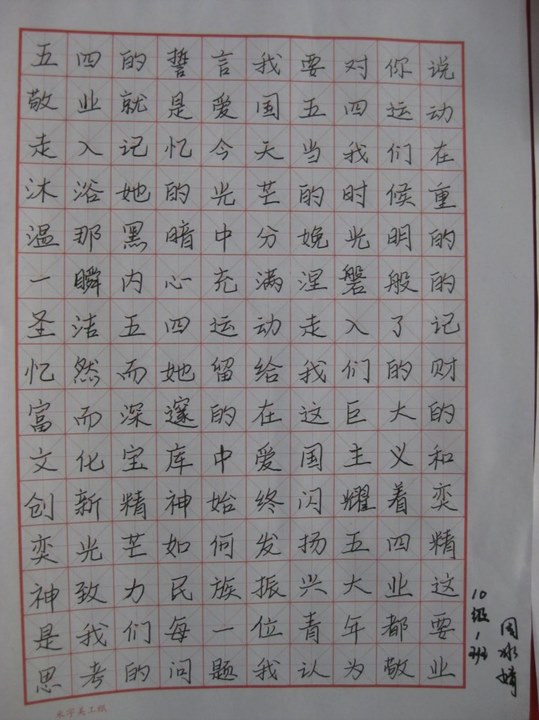 五四的誓言我要对你说
敬业就是爱国五四运动
走入记忆今天当我们在
沐浴她的光芒的时候重
温那黑暗中分娩光明的
一瞬内心充满涅磐般的
圣洁五四运动走入了记
忆然而她留给我们的财
富而深邃的在这巨大的
文化宝库中爱国主义和
创新精神始终闪耀着奕
奕光芒如何发扬五四精
神致力民族振兴大业这
是我们每一位青年都要
思考的问题我认为敬业
10级1班
周冰婧
米字美工纸